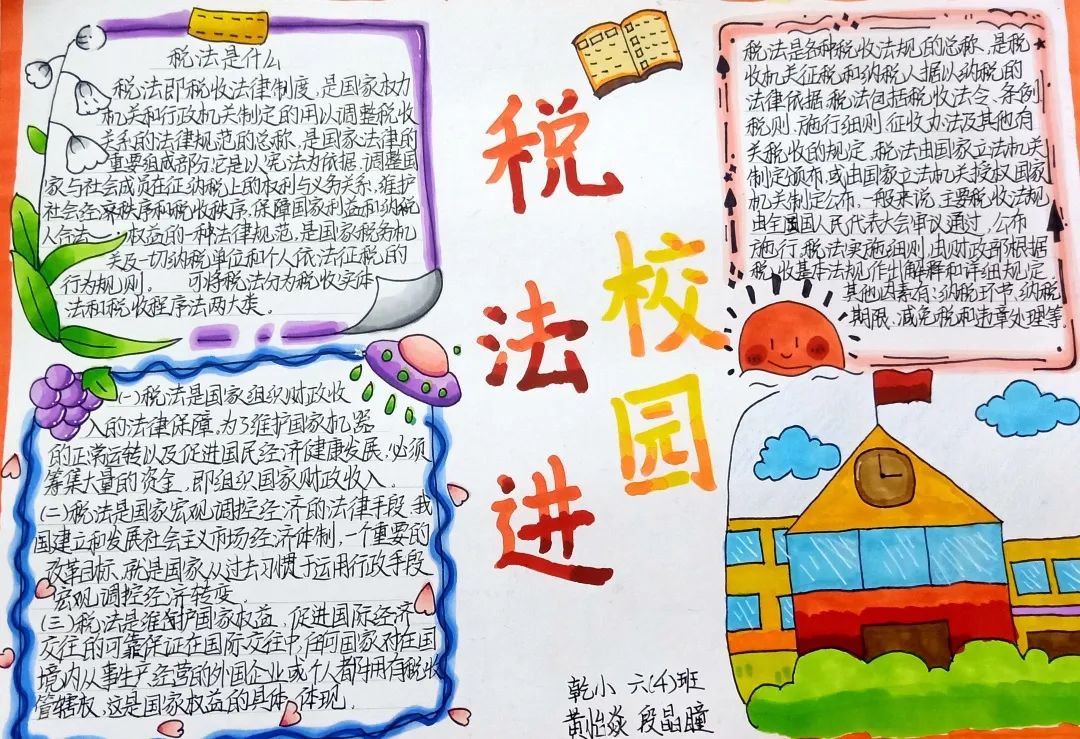 税法是什么
税法即税收法律制度,是国家权力
机关和行政机关制定的用以调整税收
关系的法律规范的总称,是国家法律的
重要组成部分。它是以宪法为依据,调整国
家与社会成员在征纳税上的权利与义务关系,维护
社会经济秩序和税收秩序,保障国家利益和纳税
人合法 权益的一种法律规范,是国家税务机
关及一切纳税单位和个人依法征税的
行为规则。 可将税法分为税收实体
法和税收程序法两大类。
(一)税法是国家组织财政收
入的法律保障。为了维护国家机器
的正常运转以及促进国民经济健康发展,必须
筹集大量的资金,即组织国家财政收入。
(二)税法是国家宏观调控经济的法律手段,我
国建立和发展社会主义市场经济体制,一个重要的
改革目标,就是国家从过去习惯于运用行政手段
宏观调控经济转变。
(三)税法是维护国家权益,促进国际经济
交往的可靠保证在国际交往中,任何国家对在国
境内从事生产经营的外国企业或个人都拥有税收
管辖权,这是国家权益的具体体现。
税法进
校园
税法是各种税收法规的总称,是税
收机关征税和纳税人据以纳税的
法律依据,税法包括税收法令、条例
税则、施行细则、征收办法及其他有
关税收的规定,税法由国家立法机关
制定颁布,或由国家立法机关授权国家
机关制定公布,一般来说,主要税收法规
由全国人民代表大会审议通过,公布
施行,税法实施细则,由财政部根据
税收基本法规作出解释和详细规定,
其他因素有:纳税环节、纳税
期限、减免税和违章处理等。
乾小 六(4)班
黄怡焱 段晶瞳